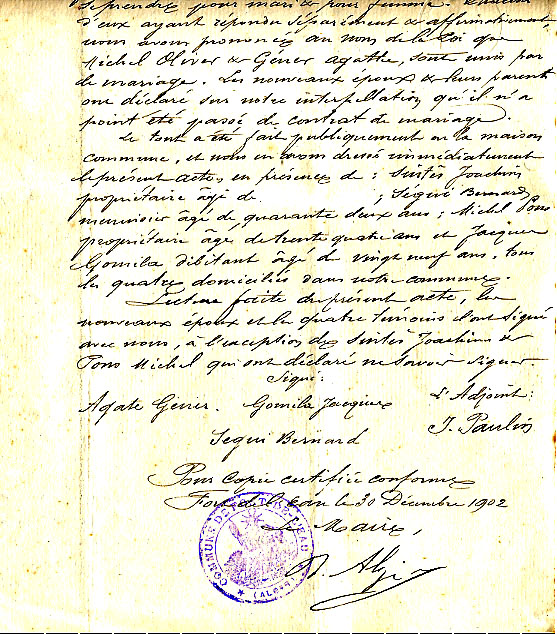 se prendre pour mari & pour femme. Chacun
d'eux ayant répondu séparément & affirmativement,
nous avons prononcé au nom de la Loi que
Michel Oliver & Gener agathe, sont unis par
le mariage. Les nouveaux époux & leurs parents
ont déclaré sur notre interpellation, qu'il n'a
point été passé de contrat de mariage.
Le tout a été fait publiquement en la maison
commune, et nous en avons dressé immédiatement
le présent acte, en présence de : Sintès Joachim
propriétaire âgé de ; Séguï Bernard,
meunier âgé de quarante deux ans ; Michel Pons
propriétaire âgé de trente quatre ans et Jacques
Gomila débitant âgé de vingt neuf ans, tous
les quatre domiciliés dans notre commune.
Lecture faite du présent acte, les
nouveaux époux et les quatre témoins l'ont signé
avec nous, à l'exception des Sintès Joachim &
Pons Michel qui ont déclaré ne savoir signer.
Signé:
Agate Gener. Gomila Jacques L'Adjoint:
J. Paulin
Segui Bernard
Pour Copie certifiée conforme
Fort de l'Eau le 30 Décembre 1902
Le Maire,
COMMUNE DE FORT-DE-L'EAU
(ALGER)